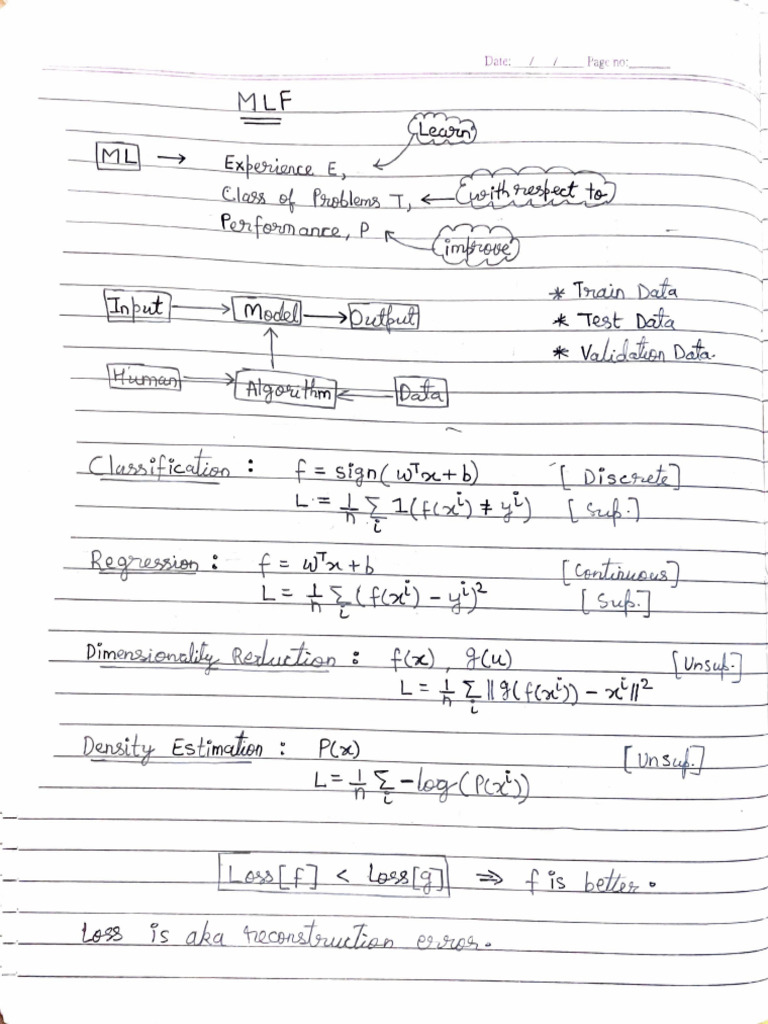 Date: / / Page no:
MLF
Learn
ML → Experience E,
Class of Problems T, ← with respect to
Performance, P
improve
Input → Model → Output
* Train Data
* Test Data
* Validation Data.
Human → Algorithm ← Data
Classification : f = sign(wᵀx + b) [Discrete]
L = 1/n Σᵢ 1(f(xⁱ) ≠ yⁱ) [Sup.]
Regression : f = wᵀx + b [Continuous]
L = 1/n Σᵢ (f(xⁱ) − yⁱ)² [Sup.]
Dimensionality Reduction : f(x), g(u) [Unsup.]
L = 1/n Σᵢ ||g(f(xⁱ)) − xⁱ||²
Density Estimation : P(x) [Unsup.]
L = 1/n Σᵢ −log(P(xⁱ))
Loss[f] < Loss[g] ⇒ f is better.
Loss is aka reconstruction error.